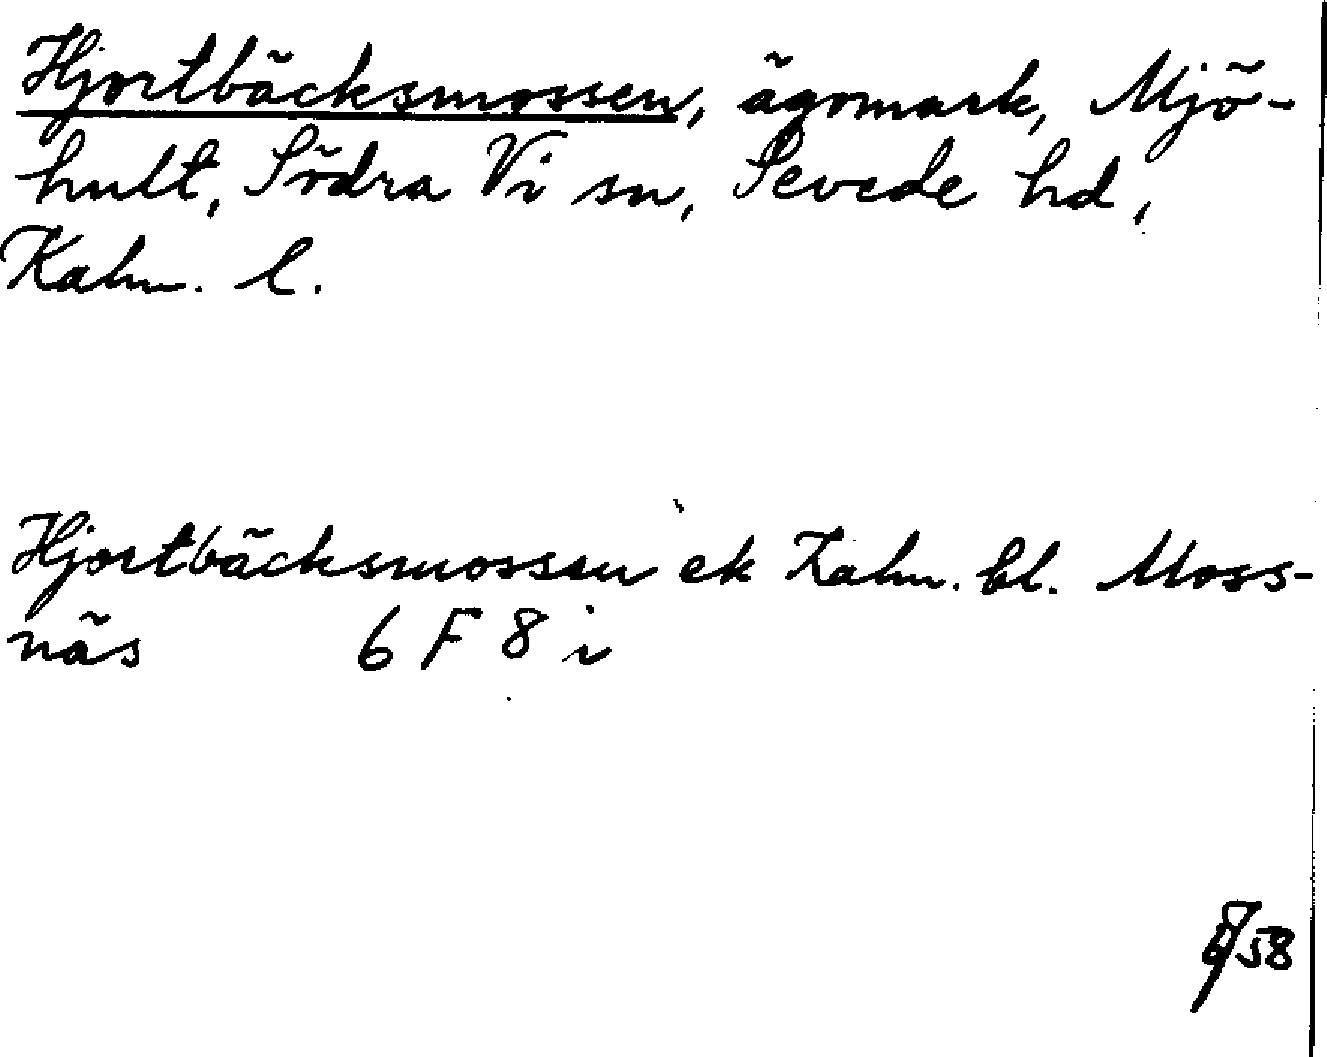 Hjortbäcksmossen, ägomark, Mjö-
hult, Södra Vi sn, Sevede hd,
Kalm. l.
Hjortbäcksmossen ek Kalm. bl. Moss-
näs 6 F 8 i
58